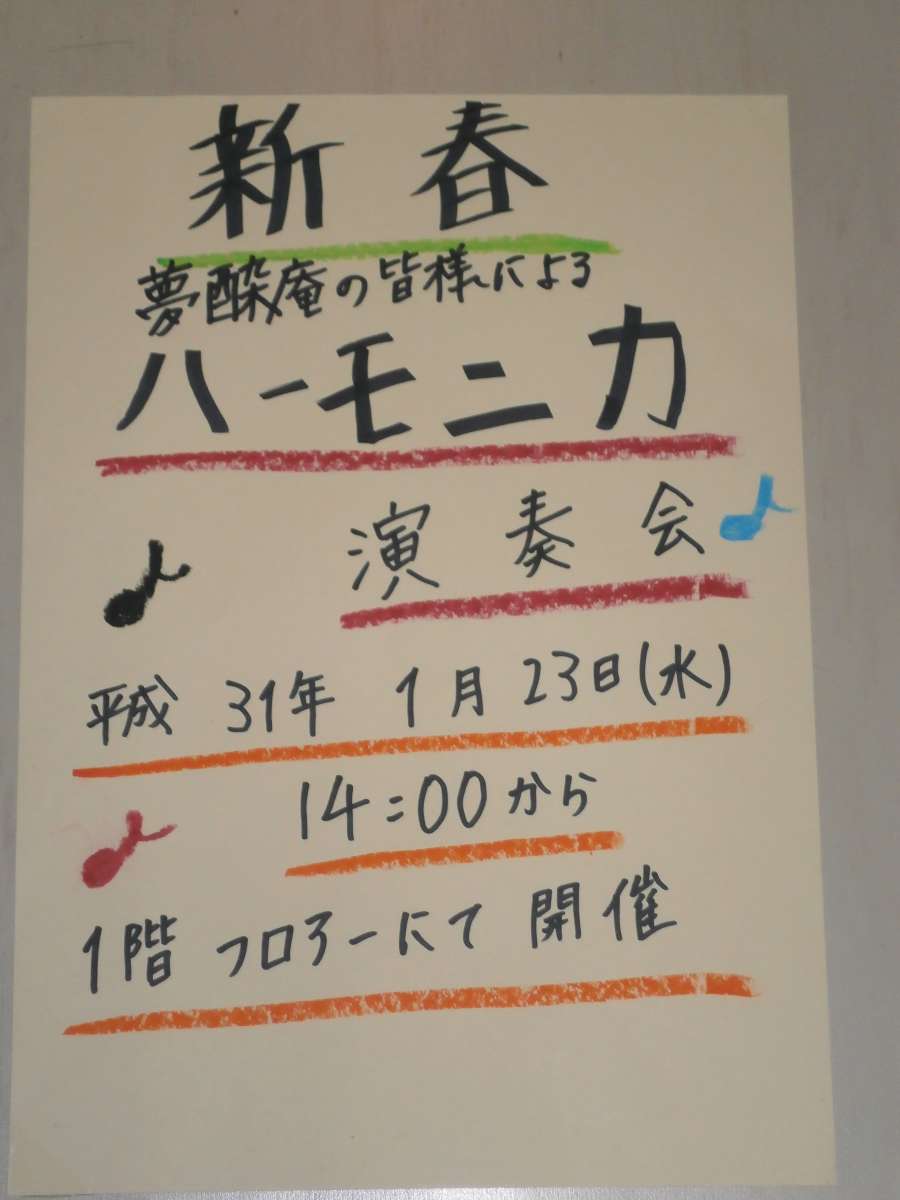 新春
夢酔庵の皆様による
ハーモニカ
演奏会
平成 31年 1月 23日(水)
14:00から
1階 フロアーにて 開催